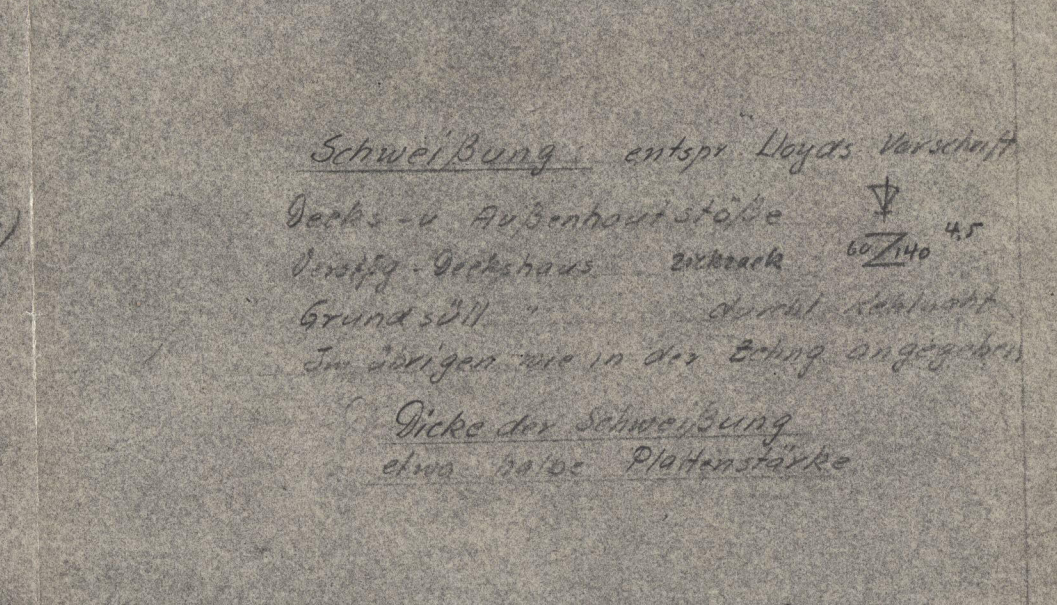 Schweißung: entspr. Lloyds Vorschrift
Decks-u Außenhautstöße
Verstfg-Deckshaus zickzack 60 Z 140 4,5
Grundsüll " durchl Kehlnaht
Im übrigen wie in der Zchng angegeben
Dicke der Schweißung
etwa halbe Plattenstärke